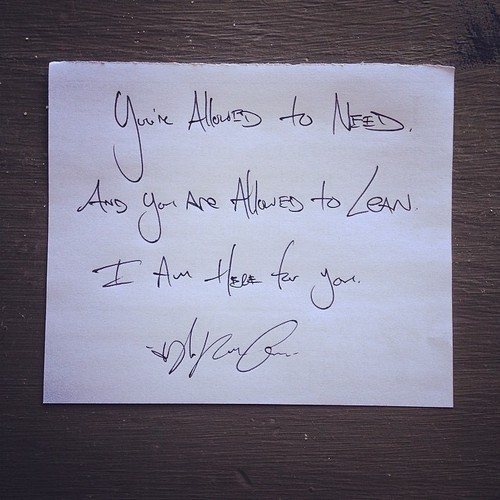 You're Allowed to Need.
And you are Allowed to Lean.
I Am Here for you.